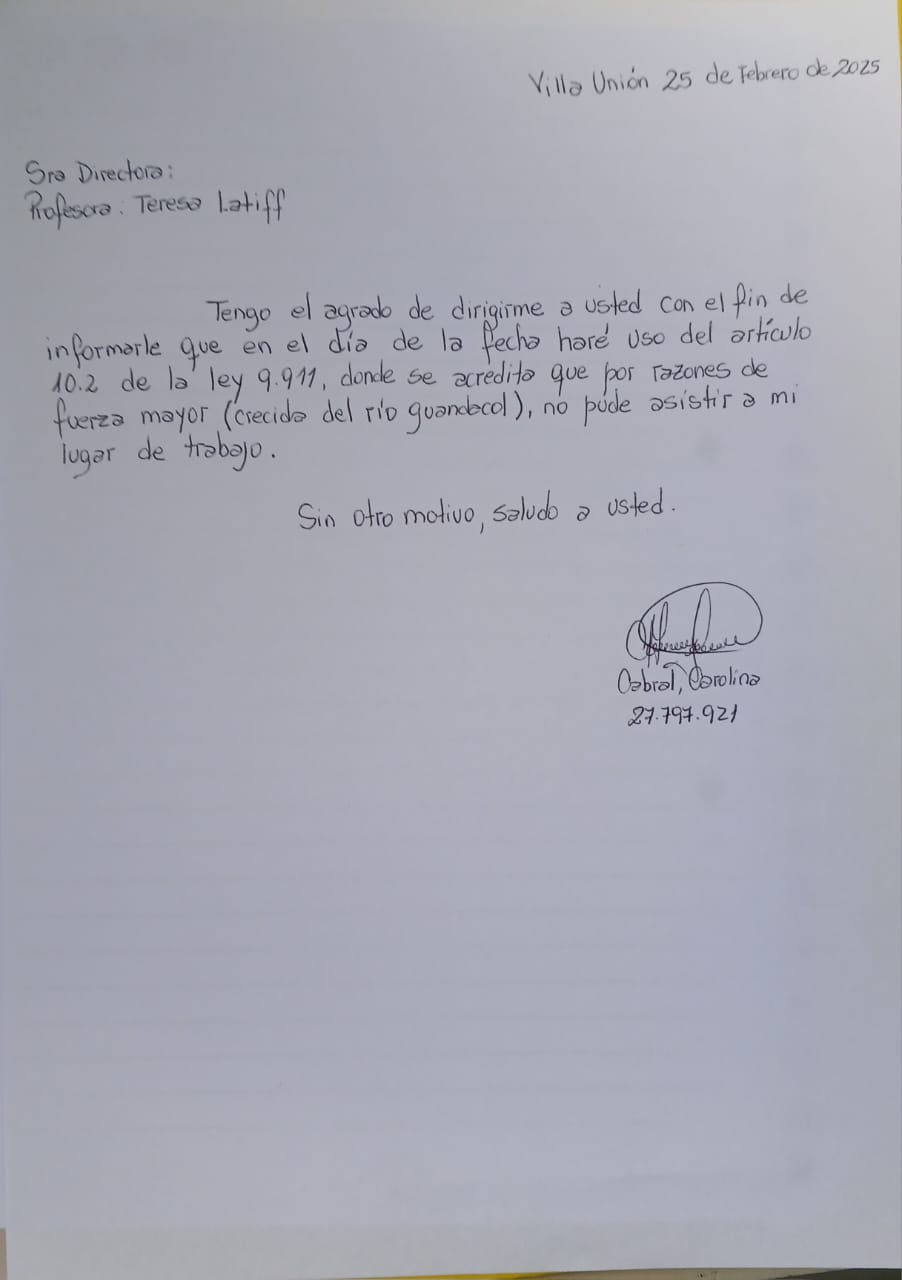 Villa Unión 25 de Febrero de 2025
Sra Directora:
Profesora: Teresa Latiff
Tengo el agrado de dirigirme a usted con el fin de
informarle que en el día de la fecha haré uso del artículo
10.2 de la ley 9.911, donde se acredita que por razones de
fuerza mayor (crecida del río guandacol), no púde asistir a mi
lugar de trabajo.
Sin otro motivo, saludo a usted.
Cabral, Carolina
27.797.921